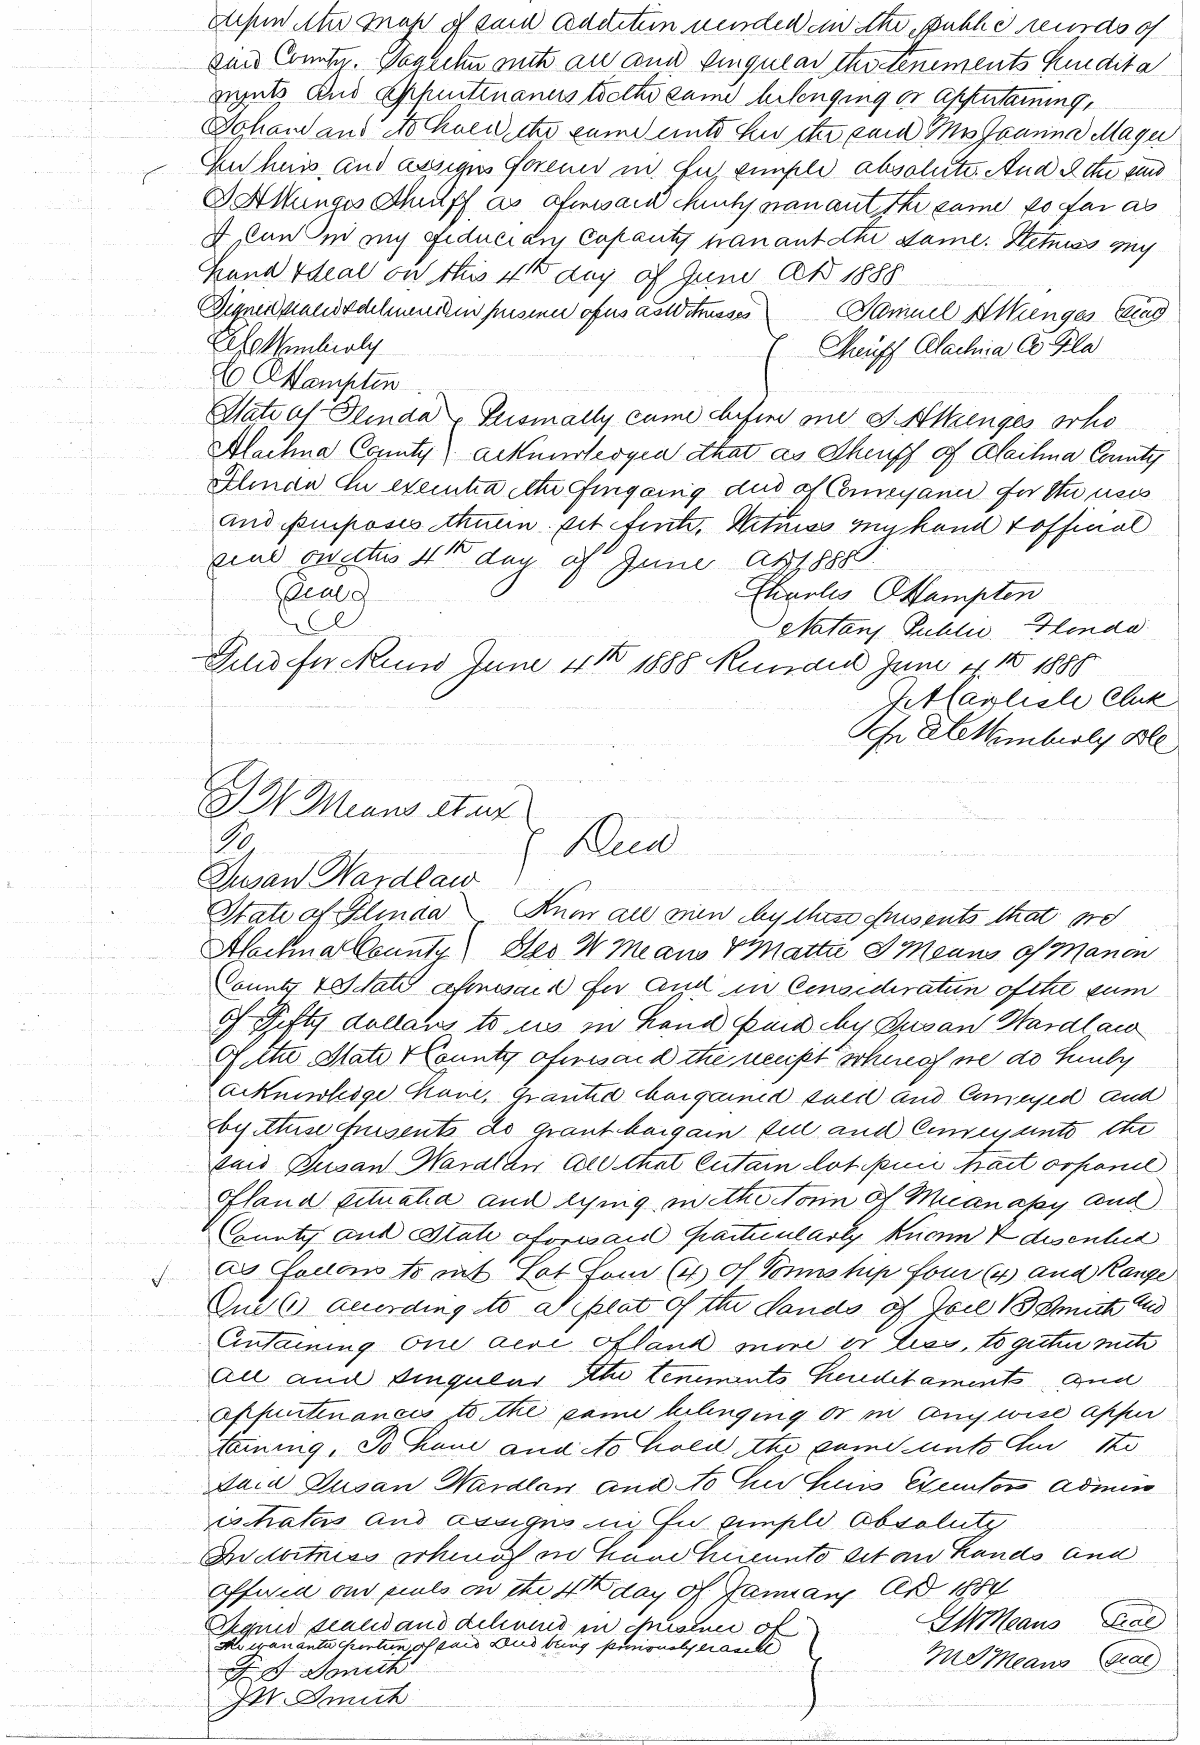 upon the map of said addition recorded in the public records of
said County. Together with all and singular the tenements heredita
ments and appurtenances to the same belonging or appertaining,
To have and to hold the same unto her the said Mrs Joanna Magee
her heirs and assigns forever in fee simple absolute. And I the said
S H Wienges Sheriff as aforesaid hereby warrant the same so far as
I can in my fiduciary capacity warrant the same. Witness my
hand & seal on this 4th day of June AD 1888
Signed sealed & delivered in presence of us as Witnesses
Samuel H Wienges Seal
Wimberly
Sheriff Alachua Co Fla
C O Hampton
State of Florida Personally came before me S H Wienges who
Alachua County acknowledged that as Sheriff of Alachua County
Florida he executed the foregoing deed of Conveyance for the uses
and purposes therein set forth. Witness my hand & official
seal on this 4th day of June AD 1888
Seal
Charles O Hampton
Notary Public Florida
Filed for Record June 4th 1888 Recorded June 4th 1888
J A Carlisle Clerk
Wimberly DC
G W Means et ux
To
Deed
Susan Wardlaw
State of Florida Know all men by these presents that we
Alachua County Geo W Means & Mattie S Means of Marion
County & State aforesaid for and in Consideration of the sum
of Fifty dollars to us in hand paid by Susan Wardlaw
of the State & County aforesaid the receipt whereof we do hereby
acknowledge have, granted bargained sold and Conveyed and
by these presents do grant bargain sell and Convey unto the
said Susan Wardlaw all that Certain lot piece tract or parcel
of land situated and lying in the town of Micanopy and
County and State aforesaid particularly Known & described
as follows to wit Lot four (4) of Township four (4) and Range
One (1) according to a plat of the lands of Joel B Smith and
Containing one acre of land more or less, together with
all and singular the tenements hereditaments and
appurtenances to the same belonging or in any wise apper
taining, To have and to hold the same unto her the
said Susan Wardlaw and to her heirs Executors admin
istrators and assigns in fee simple absolute
In Witness whereof we have hereunto set our hands and
affixed our seals on the 4th day of January AD 1884
Signed sealed and delivered in presence of
G W Means Seal
the warrantee portion of said Deed being previously erased
M S Means Seal
Smith
J W Smith